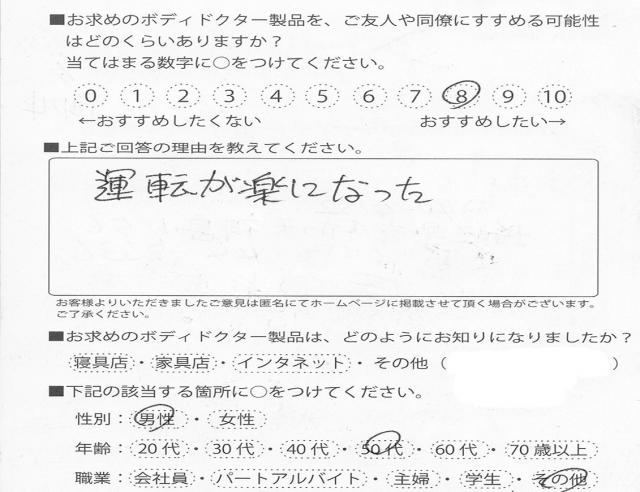 ■お求めのボディドクター製品を、ご友人や同僚にすすめる可能性
はどのくらいありますか？
当てはまる数字に○をつけてください。
0 1 2 3 4 5 6 7 8 9 10
←おすすめしたくない おすすめしたい→
■上記ご回答の理由を教えてください。
運転が楽になった
お客様よりいただきましたご意見は匿名にてホームページに掲載させて頂く場合がございます。
ご了承ください。
■お求めのボディドクター製品は、どのようにお知りになりましたか？
寝具店・家具店・インタネット・その他（ ）
■下記の該当する箇所に○をつけてください。
性別：男性・女性
年齢：20代・30代・40代・50代・60代・70歳以上
職業：会社員・パートアルバイト・主婦・学生・その他